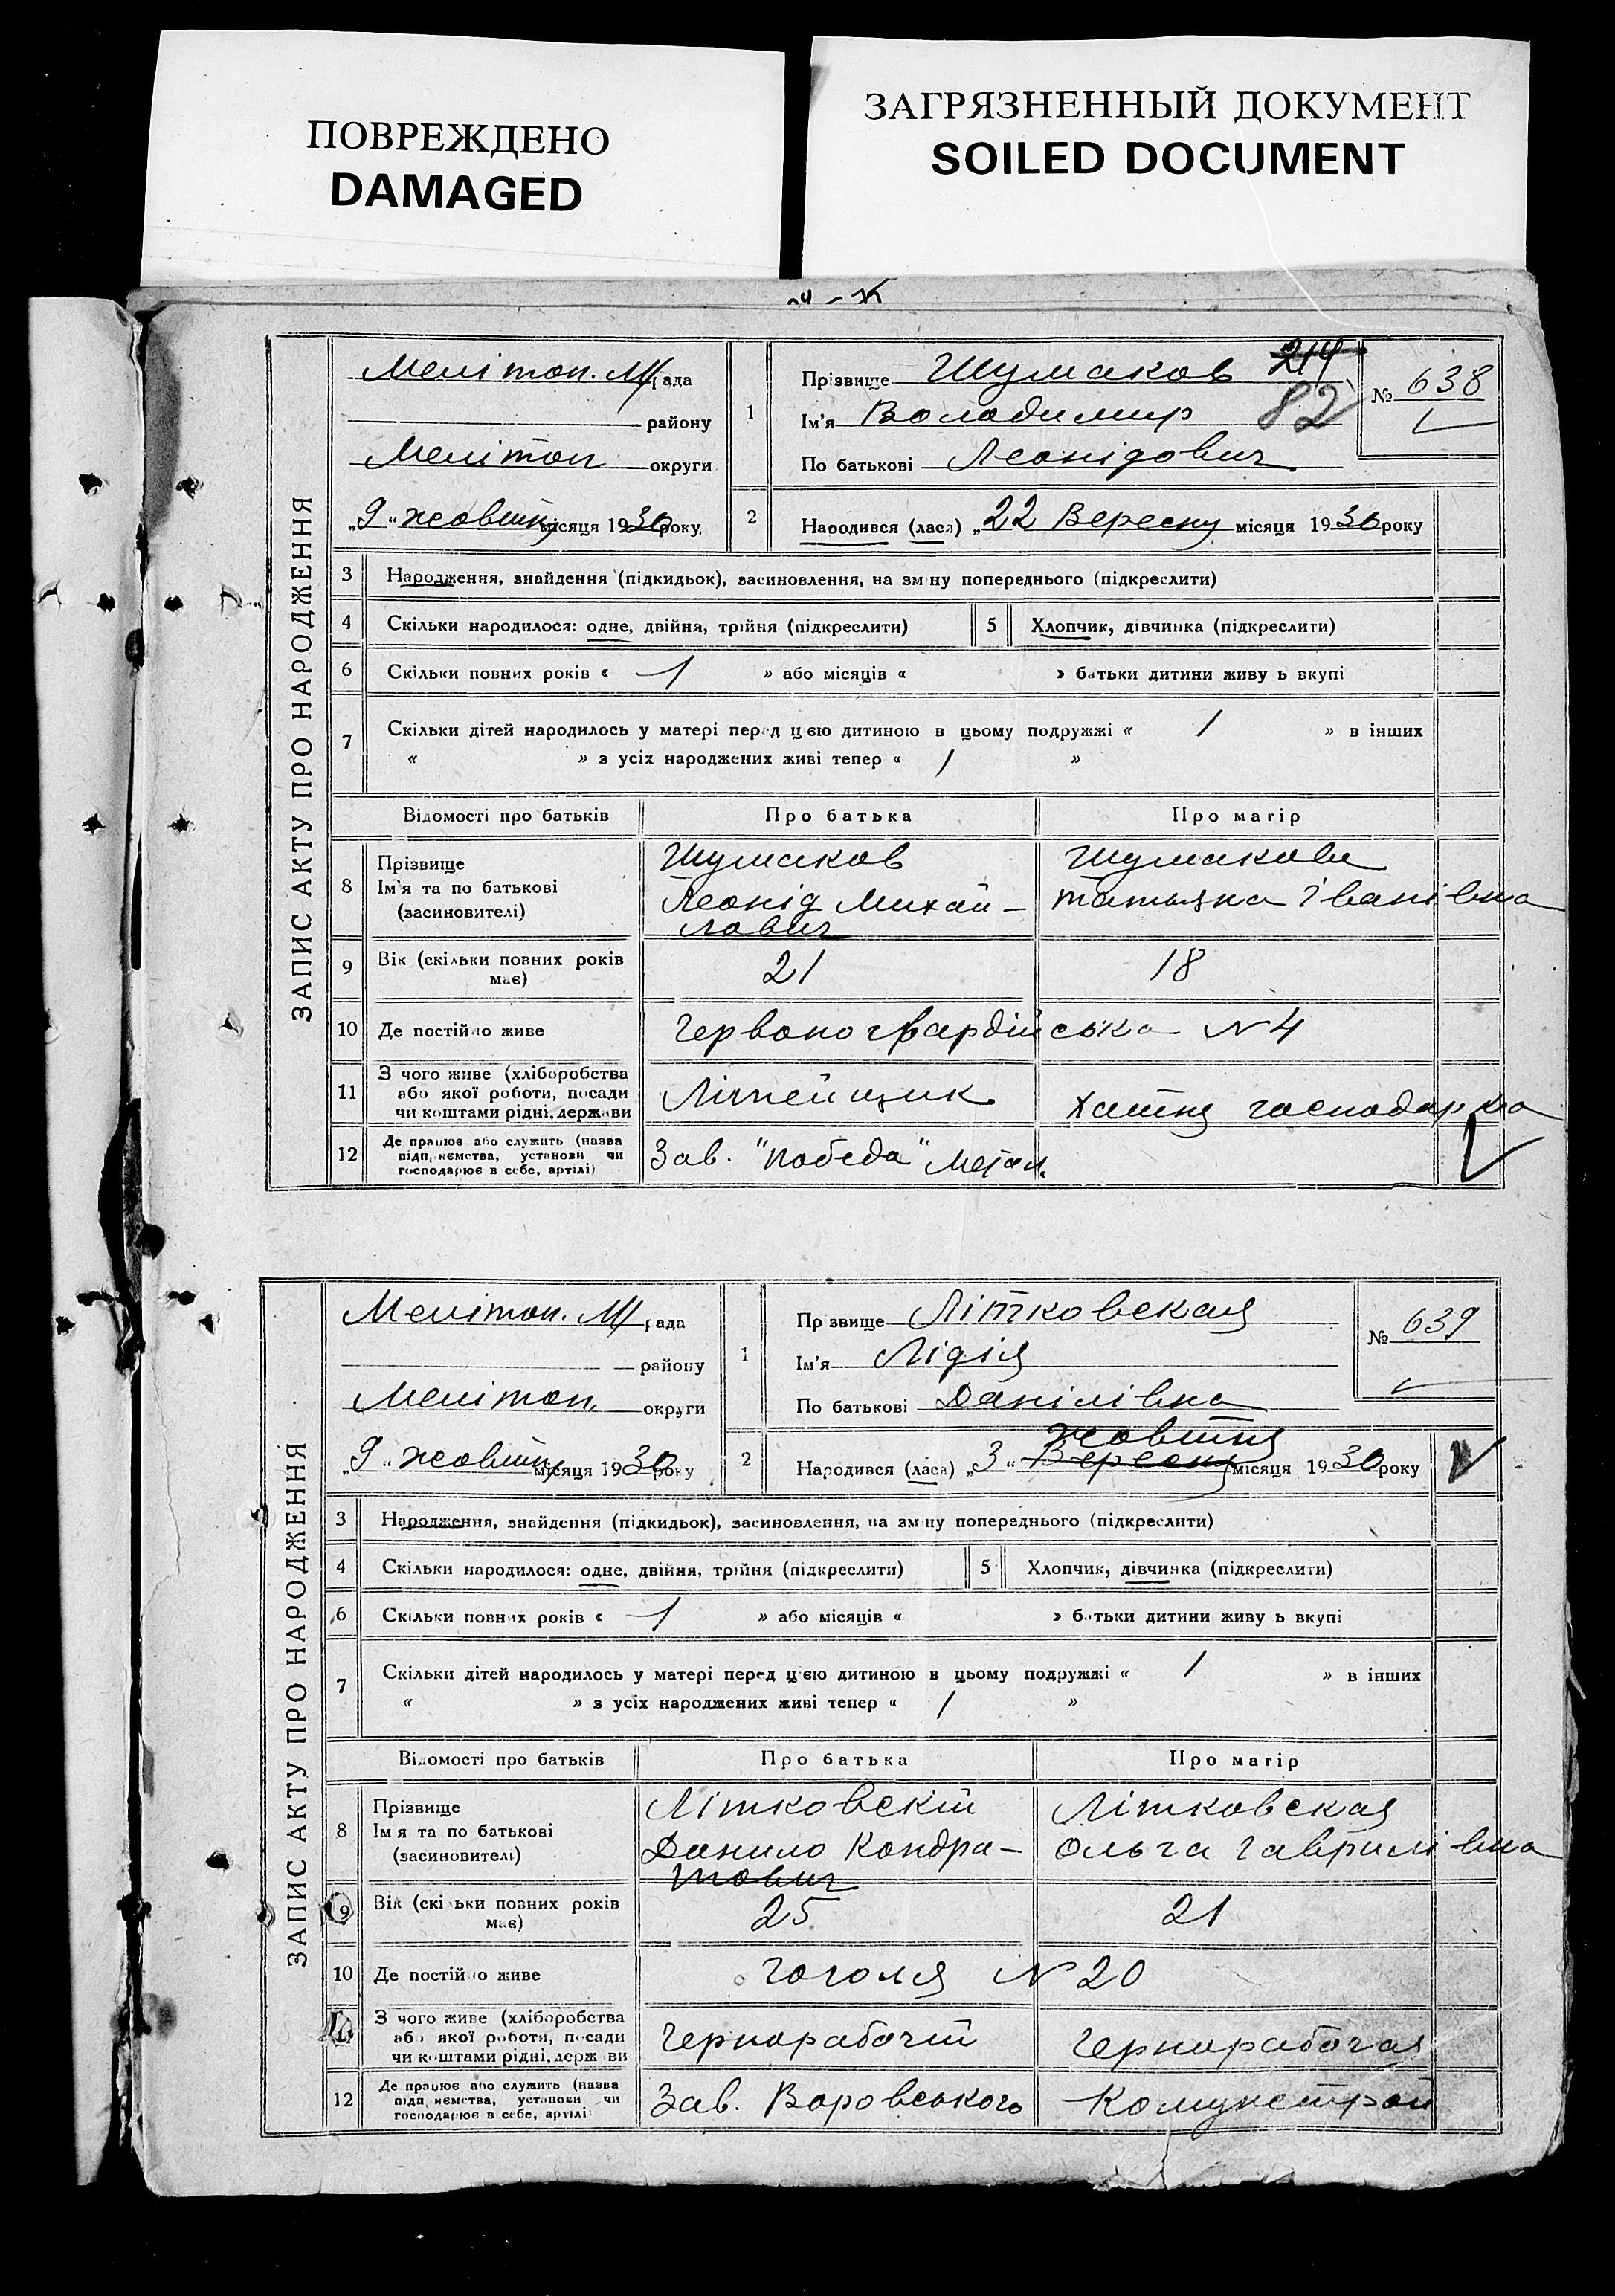 ПОВРЕЖДЕНО
DAMAGED
ЗАГРЯЗНЕННЫЙ ДОКУМЕНТ
SOILED DOCUMENT
ЗАПИС АКТУ ПРО НАРОДЖЕННЯ
Меліпоп. М/рада
району
Меліпоп округи
„9“ жовтня місяця 1930 року.
1
Прізвище Шумаков
Ім'я Володимир
По батькові Леонідович
214
82
№ 638
2 Народився (лася) „22 Вересня місяця 1930 року
3 Народження, знайдення (підкидьок), засиновлення, на зміну попереднього (підкреслити)
4 Скільки народилося: одне, двійня, трійня (підкреслити) 5 Хлопчик, дівчинка (підкреслити)
6 Скільки повних років « 1 » або місяців « » батьки дитини живуть вкупі
7 Скільки дітей народилось у матері перед цією дитиною в цьому подружжі « 1 » в інших
« » з усіх народжених живі тепер « 1 »
Відомості про батьків Про батька Про матір
8 Прізвище Шумаков Шумакова
Ім'я та по батькові Леонід Михай- Татьяна Іванівна
(засиновителі) лович
9 Вік (скільки повних років має) 21 18
10 Де постійно живе Червоногвардійська N 4
11 З чого живе (хліборобства
або якої роботи, посади Літейщик Хатня господарка
чи коштами рідні, держави
12 Де працює або служить (назва
підприємства, установи чи Зав. "Победа" Метал.
господарює в себе, артілі)
ЗАПИС АКТУ ПРО НАРОДЖЕННЯ
Меліпоп. М/рада
району
Меліпоп. округи
„9“ жовтня місяця 1930 року
1
Прізвище Літковская
Ім'я Лідія
По батькові Данілівна
№ 639
жовтня
2 Народився (лася) „3“ Вересня місяця 1930 року
3 Народження, знайдення (підкидьок), засиновлення, на зміну попереднього (підкреслити)
4 Скільки народилося: одне, двійня, трійня (підкреслити) 5 Хлопчик, дівчинка (підкреслити)
6 Скільки повних років « 1 » або місяців « » батьки дитини живуть вкупі
7 Скільки дітей народилось у матері перед цією дитиною в цьому подружжі « 1 » в інших
« » з усіх народжених живі тепер « 1 »
Відомості про батьків Про батька Про матір
8 Прізвище Літковскій Літковская
Ім'я та по батькові Данило Кондра- Ольга Гаврилівна
(засиновителі) тович
9 Вік (скільки повних років має) 25 21
10 Де постійно живе Гоголя N 20
11 З чого живе (хліборобства
або якої роботи, посади Чернорабочій Чернорабочая
чи коштами рідні, держави
12 Де працює або служить (назва
підприємства, установи чи Зав. Воровського Комунстрой
господарює в себе, артілі)